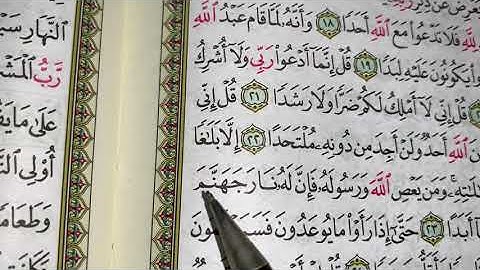 فَلَا تَدْعُوا۟ مَعَ ٱللَّهِ أَحَدًا ١٨ وَأَنَّهُۥ لَمَّا قَامَ عَبْدُ ٱللَّهِ
يَكُونُونَ عَلَيْهِ لِبَدًا ١٩ قُلْ إِنَّمَآ أَدْعُوا۟ رَبِّى وَلَآ أُشْرِكُ
إِنِّى لَآ أَمْلِكُ لَكُمْ ضَرًّا وَلَا رَشَدًا ٢١ قُلْ إِنِّى
ٱللَّهِ أَحَدٌ وَلَنْ أَجِدَ مِن دُونِهِۦ مُلْتَحَدًا ٢٢ إِلَّا بَلَٰغًا
وَمَن يَعْصِ ٱللَّهَ وَرَسُولَهُۥ فَإِنَّ لَهُۥ نَارَ جَهَنَّمَ
أَبَدًا ٢٣ حَتَّىٰٓ إِذَا رَأَوْا۟ مَا يُوعَدُونَ فَسَيَعْلَمُونَ
ٱلنَّهَارِ
رَّبُّ
عَلَىٰ مَا
أُو۟لِى
وَطَعَامًا